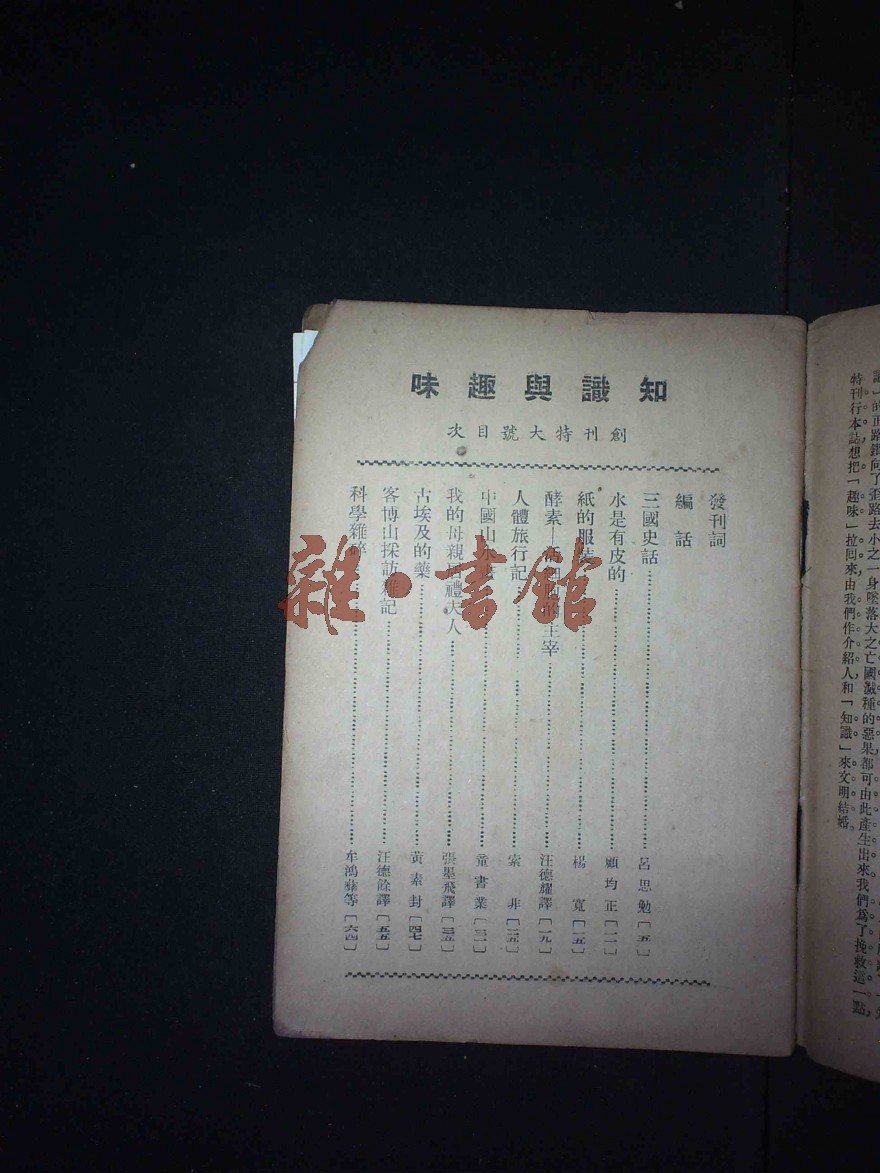 知識與趣味
創刊特大號目次
發刊詞
編話
三國史話……呂思勉[五]
水是有皮的……顧均正[一一]
紙的服裝……楊寬[一五]
酵素—活細胞的主宰……汪德耀譯[一九]
人體旅行記……索非[二五]
中國山水畫……童書業[三一]
我的母親居禮夫人……張墨飛譯[三五]
古埃及的藥……黃素封[四七]
客博山採訪雜記……汪德餘譯[五五]
科學雜碎……牟鴻彝等[六四]
雜·書館
的正路鑽向了歪路去小之一身墜落大之亡國滅種的惡果都可由此產生出來我們爲了挽救這一點,
特刊行本誌想把「趣味」拉回來由我們作介紹人和「知識」來文明結婚。